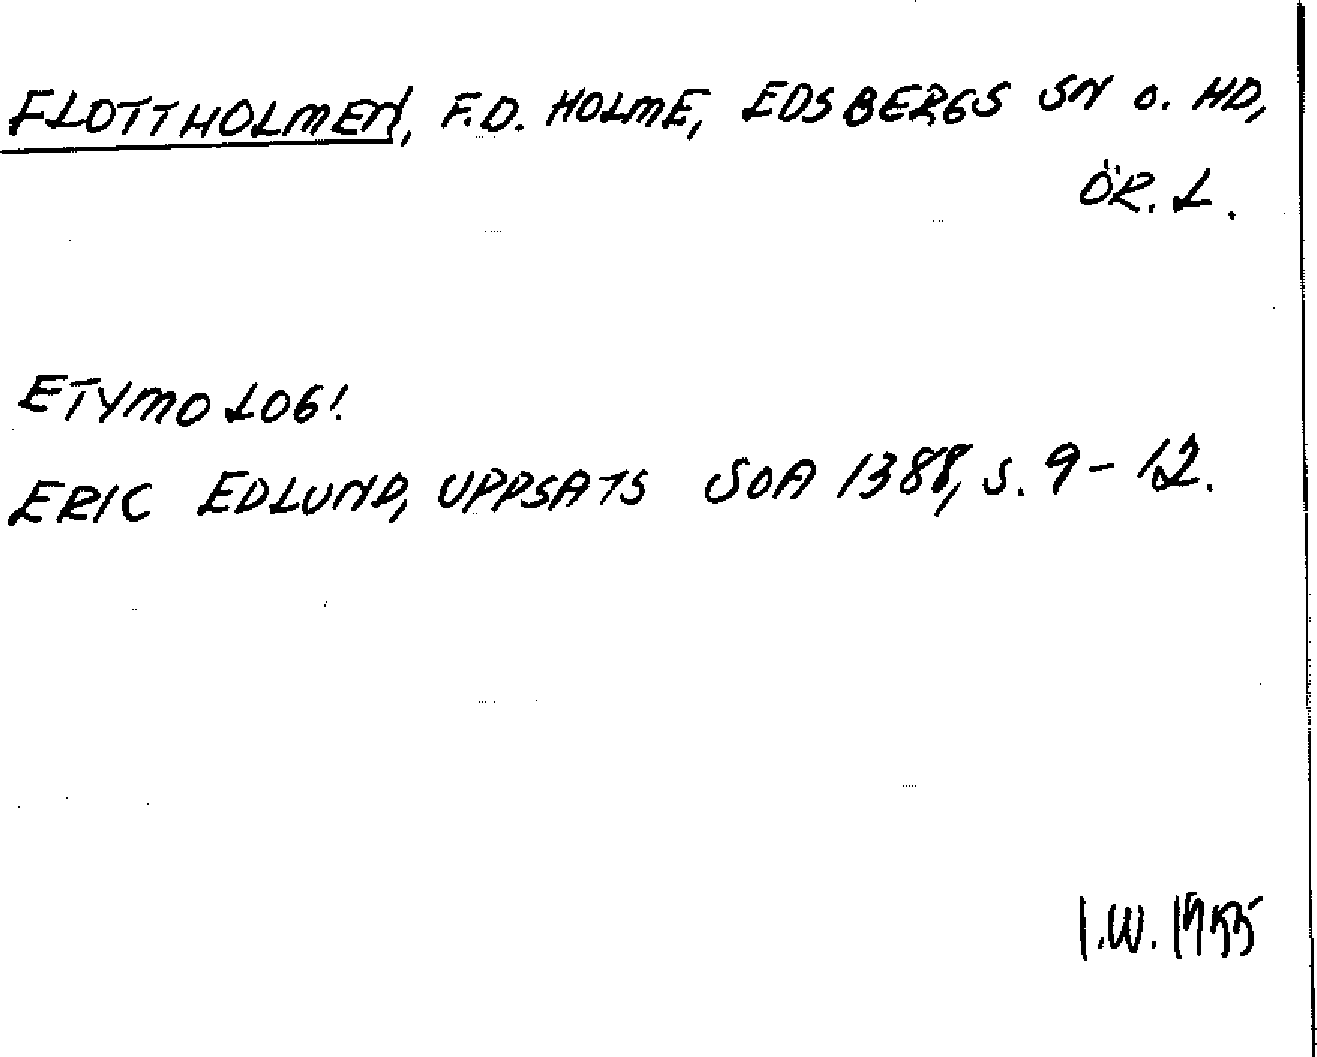 FLOTTHOLMEN, F.D. HOLME, EDSBERGS SN o. HD,
ÖR. L.
ETYMOLOGI.
ERIC EDLUND, UPPSATS SOA 1388, s. 9-12.
I.W. 1955